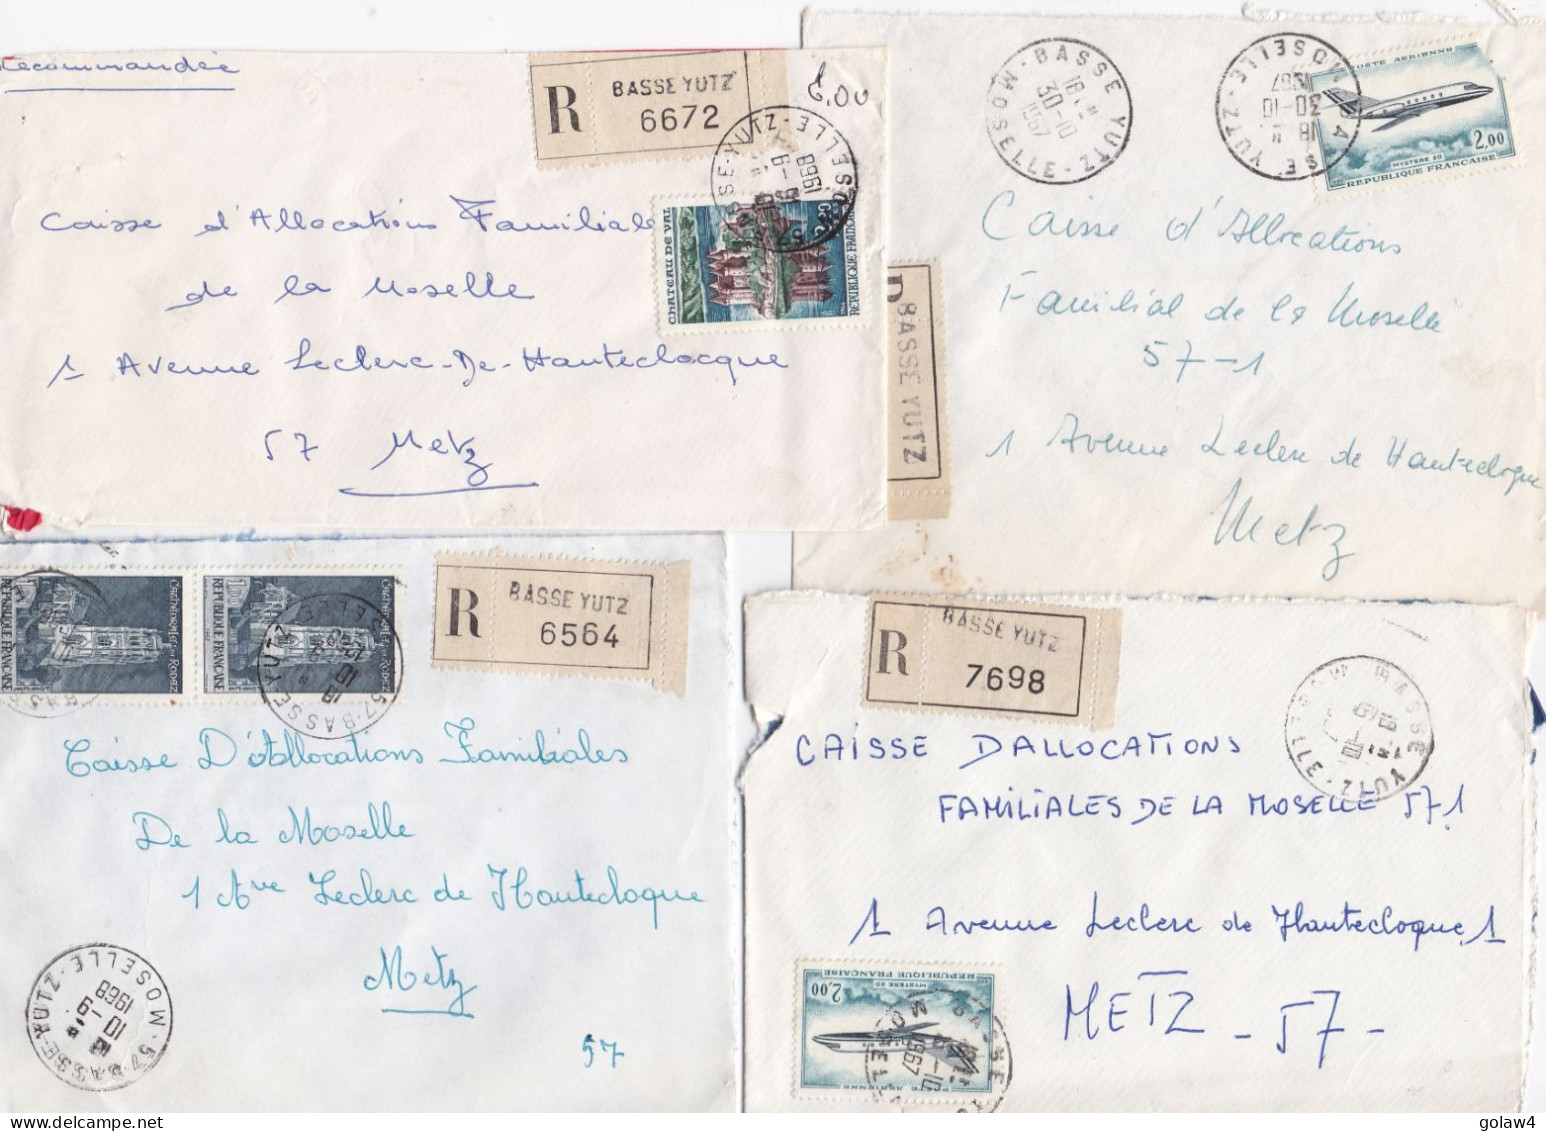 Recommandée
R
BASSE YUTZ
6672
6,00
57 BASSE-YUTZ MOSELLE
9-9
1968
CHATEAU DE VAL
REPUBLIQUE FRANCAISE
Caisse d'Allocations Familiale
de la Moselle
1 Avenue Leclerc-De-Hauteclocque
57 Metz
BASSE YUTZ MOSELLE
18H
30-10
1967
BASSE YUTZ MOSELLE
18H
30-10
1967
POSTE AERIENNE
2,00
MYSTERE 20
REPUBLIQUE FRANCAISE
R
BASSE YUTZ
Caisse d'Allocations
Familial de la Moselle
57-1
1 Avenue Leclerc de Hauteclogue
Metz
Cathédrale de Rodez
REPUBLIQUE FRANCAISE
Cathédrale de Rodez
REPUBLIQUE FRANCAISE
57-BASSE YUTZ MOSELLE
R
BASSE YUTZ
6564
Caisse D'Allocations Familiales
De la Moselle
1 Ave Leclerc de Hauteclogue
Metz
57
57-BASSE-YUTZ-MOSELLE
18H
10-9
1968
R
BASSE YUTZ
7698
BASSE YUTZ MOSELLE
CAISSE DALLOCATIONS
FAMILIALES DE LA MOSELLE 571
1 Avenue Leclerc de Hautecloque 1
METZ - 57 -
POSTE AERIENNE
2,00
MYSTERE 20
REPUBLIQUE FRANCAISE
BASSE YUTZ MOSELLE
1967
golaw4